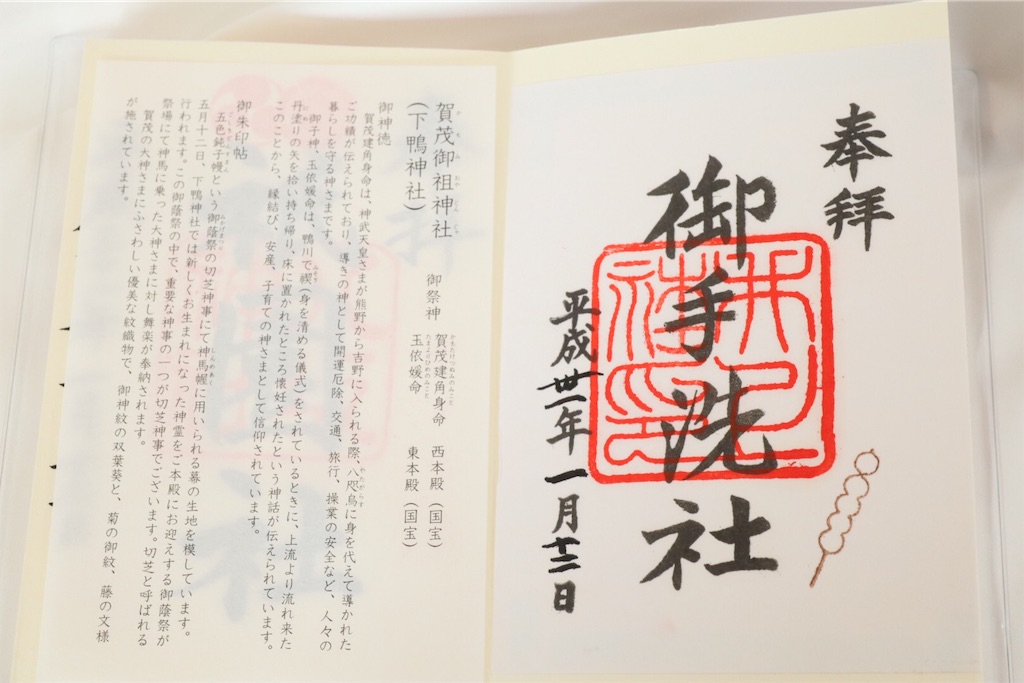 奉拝
御手洗社
平成卅一年 一月十二日
賀茂御祖神社
(下鴨神社)
御祭神 賀茂建角身命 西本殿(国宝)
玉依媛命 東本殿(国宝)
御神徳
賀茂建角身命は、神武天皇さまが熊野から吉野に入られる際、八咫烏に身を代えて導かれた
ご功績が伝えられており、導きの神として開運厄除、交通、旅行、操業の安全など、人々の
暮らしを守る神さまです。
御子神、玉依媛命は、鴨川で禊(身を清める儀式)をされているときに、上流より流れ来た
丹塗りの矢を拾い持ち帰り、床に置かれたところ懐妊されたという神話が伝えられています。
このことから、縁結び、安産、子育ての神さまとして信仰されています。
御朱印帖
五色鈍子幔という御蔭祭の切芝神事にて神馬幄に用いられる幕の生地を模しています。
五月十二日、下鴨神社では新しくお生まれになった神霊をご本殿にお迎えする御蔭祭が
行われます。この御蔭祭の中で、重要な神事の一つが切芝神事でございます。切芝と呼ばれる
祭場にて神馬に乗った大神さまに対し舞楽が奉納されます。
賀茂の大神さまにふさわしい優美な紋織物で、御神紋の双葉葵と、菊の御紋、藤の文様
が施されています。